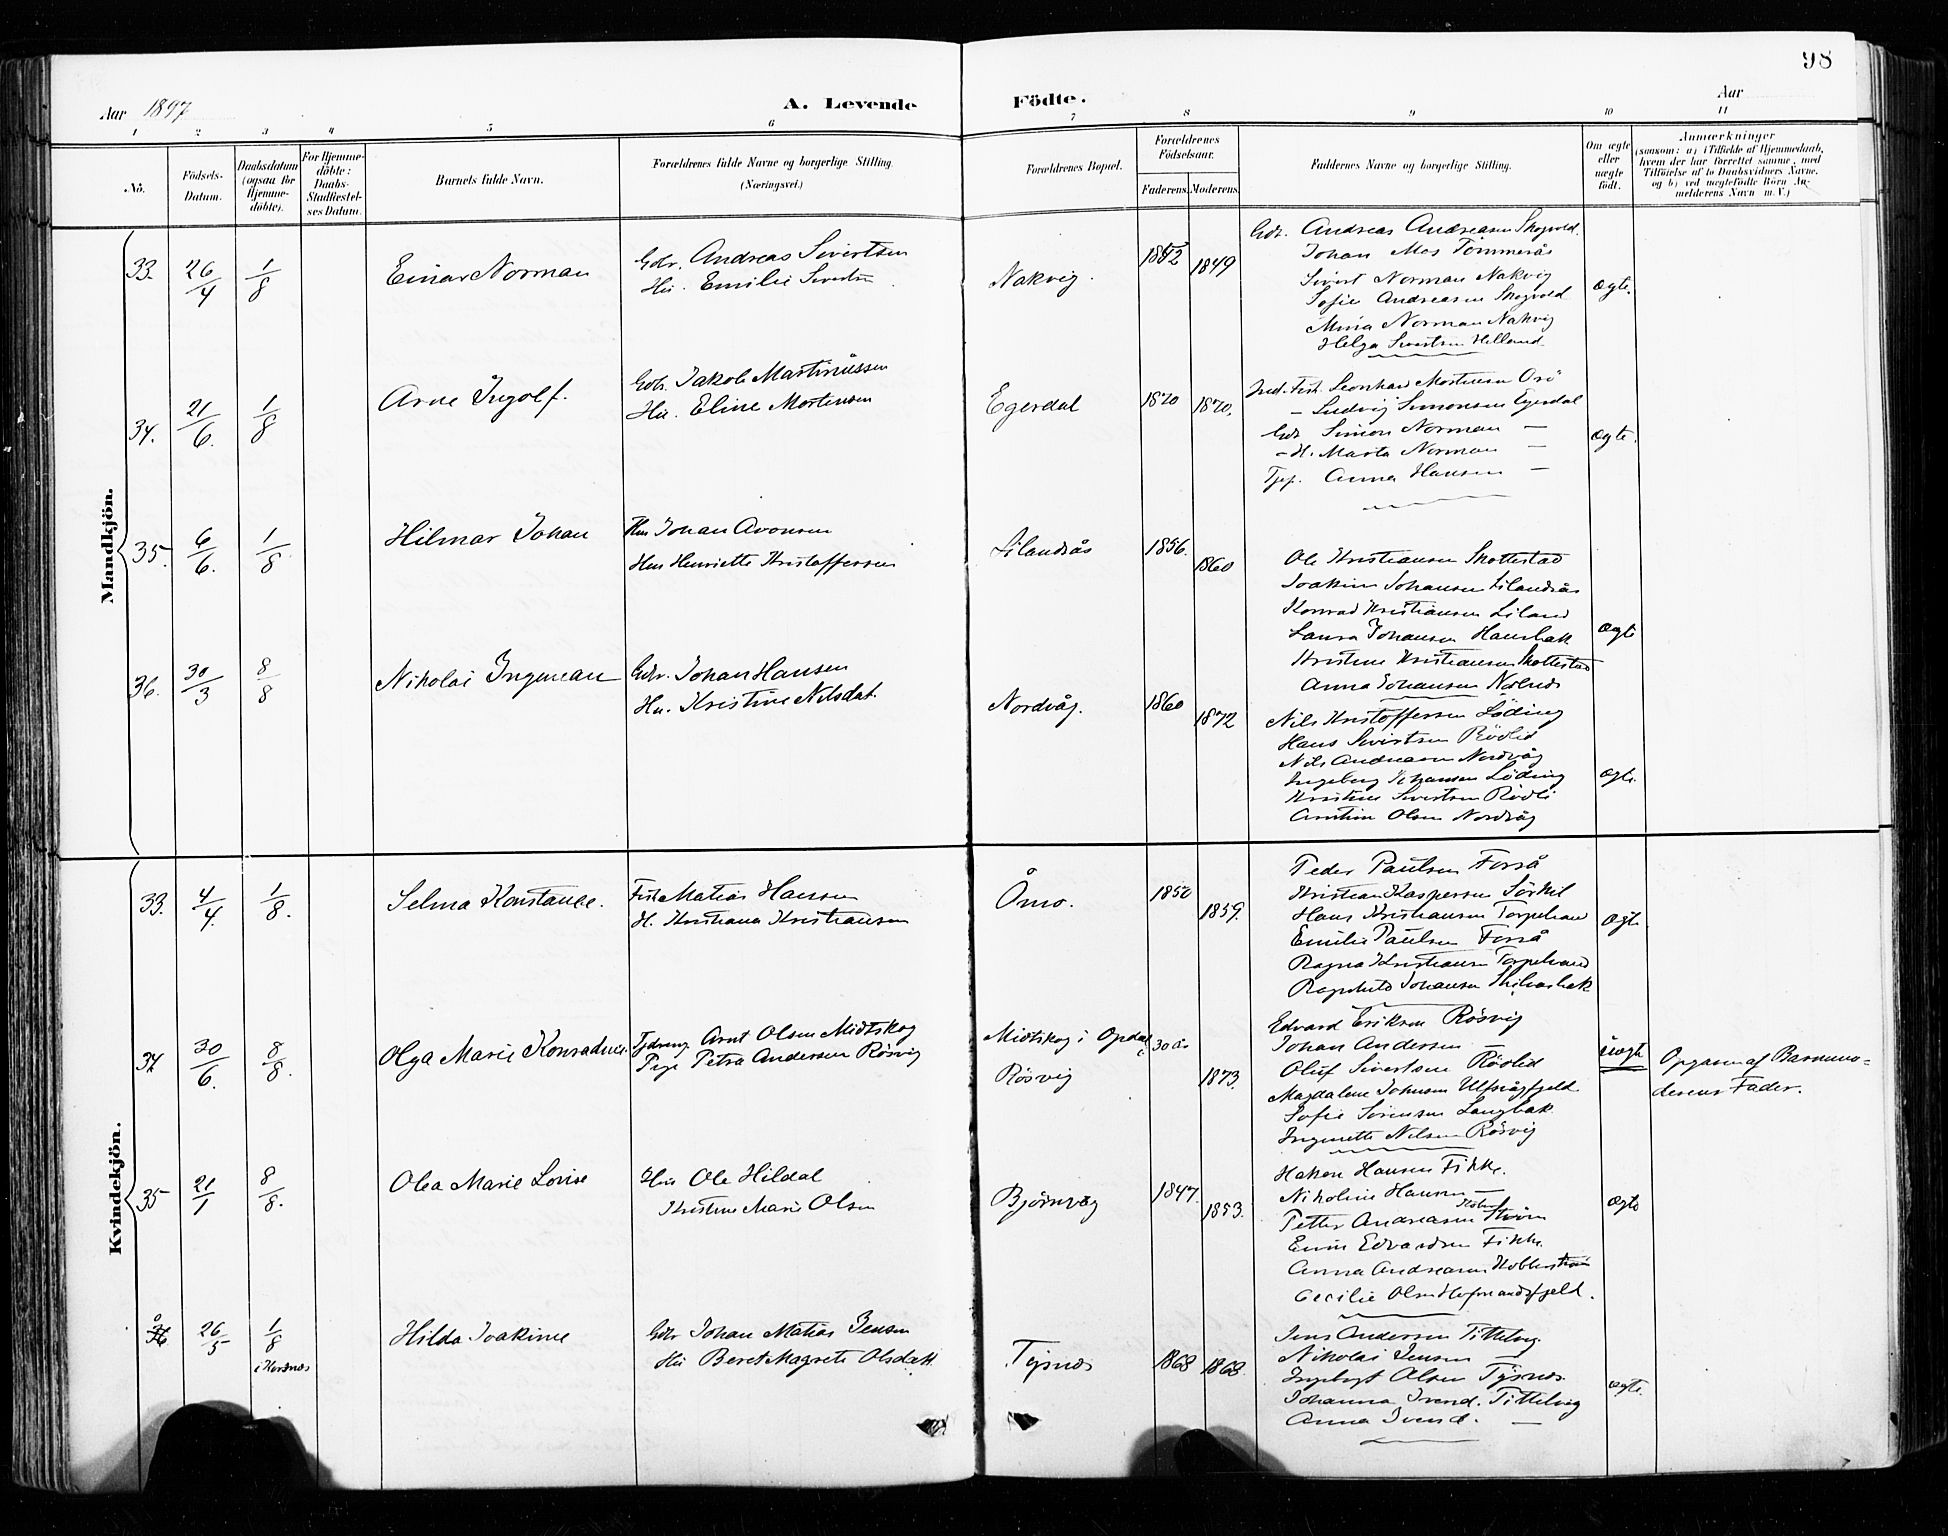 98
Aar 1897
A. Levende Födte.
Aar
1 2 3 4 5 6 7 8 9 10 11
No.
Födsels-Datum.
Daabsdatum (ogsaa for Hjemmedöbte).
For Hjemmedöbte: Daabs-Stadfæstelses Datum.
Barnets fulde Navn.
Forældrenes fulde Navne og borgerlige Stilling.
(Næringsvei.)
Forældrenes Bopæl.
Forældrenes Födselsaar.
Faderens. Moderens.
Faddernes Navne og borgerlige Stilling.
Om ægte eller uægte födt.
Anmærkninger
(saasom: a) i Tilfælde af Hjemmedaab,
hvem der har forrettet samme, med
Tilföielse af to Daabsvidners Navne,
og b) ved uægtefödte Börn An-
melderens Navn m. V.)
Mandkjön.
33. 26/4 1/8 Einar Norman
Gdr. Andreas Sivertsen
Hu. Emilie Sivertsn
Nakvig. 1849
Gdr. Andreas Andreasen Skogvold.
Johan Mos Tömmerås
Sivert Norman Nakvig
Sofie Andreasen Skogvold
Mina Norman Nakvig
Helga Sivertsen Helland
ægte.
34. 21/6. 1/8 Arne Ingolf.
Gdr. Jakob Martinussen
Hu. Eline Mortensen
Egerdal 1870 1870.
Ind. Fisk. Leonhard Mortensen Orö
— Ludvig Simonsen Egerdal
Gdr. Simon Norman —
- H. Marta Norman —
Tje. Anna Hansen —
ægte.
35. 6/6. 1/8 Hilmar Johan
Hm Johan Aronsen
Hus Henriette Kristoffersen
Lilandsås 1856. 1860
Ole Kristiansen Skottestad
Joakim Johansen Lilandsås
Konrad Kristiansen Liland
Laura Johansen Haunbak
Kristine Kristiansen Skottestad
Anna Johansen
ægte
36. 30/3 8/8 Nikolai Ingeman
Gdr. Johan Hansen
Hu. Kristine Nilsdat.
Nordvåg. 1860 1872
Nils Kristoffersen Löding
Hans Sivertsen Rödlid
Nils Andreasen Nordvåg
Ingeborg Johansen Löding
Kristine Sivertsen Rödli
Olsen Nordvåg
ægte.
Kvindekjön.
33. 4/4. 1/8. Selma Konstance.
Fisk. Matias Hansen
H. Kristiana Kristiansen
Åmo. 1850 1859.
Peder Paulsen Forså
Kristian Kaspersen Sörkil
Hans Kristiansen Torpehaud
Emilie Paulsen Forså
Ragna Kristiansen Torpehaud
Ragnhild Johansen
ægte
34 30/6. 8/8. Olga Marie Konradine.
Tjdreng Arnt Olsen Midtskog
Pige Petra Andersen Rösvig
Midtskog i Opdal 30 år
Rösvig 1873.
Edvard Eriksen Rösvig
Johan Andersen —
Oluf Sivertsen Rödlid
Magdalene Johnsen Ulfsvågfjeld
Sofie Sörensen Langbak
Ingenette Nilsen Rösvig
uægte
Opgivn af Barnemo-
derens Fader.
35 21/1 8/8. Olea Marie Lovise
Hus Ole Hildal
Kristine Marie Olsen
Björnvåg 1847. 1853.
Hakon Hansen Fikke.
Nikoline Hansen —
Petter Andreasen Kobberström
Edvardsen Fikke.
Anna Andreasen Kobberström
Cecilie Olsen
ægte
36 26/5 1/8 i Hornnes Hilda Joakime
Gdr Johan Matias Jensen
Hu Beret Magrete Olsdatt.
Tysnes 1868 1868.
Jens Andersen Tittelvig
Nikolai Jensen —
Ingebrgt Olsen Tysnes.
Johanna Ivend. Tittelvig
Anna Ivend. —
ægte.